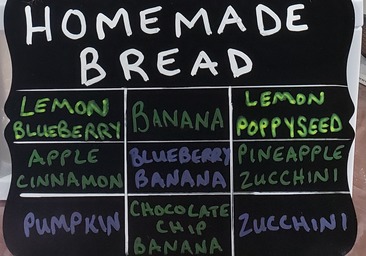 HOMEMADE
BREAD
LEMON
BLUEBERRY
BANANA
LEMON
POPPYSEED
APPLE
CINNAMON
BLUEBERRY
BANANA
PINEAPPLE
ZUCCHINI
PUMPKIN
CHOCOLATE
CHIP
BANANA
ZUCCHINI